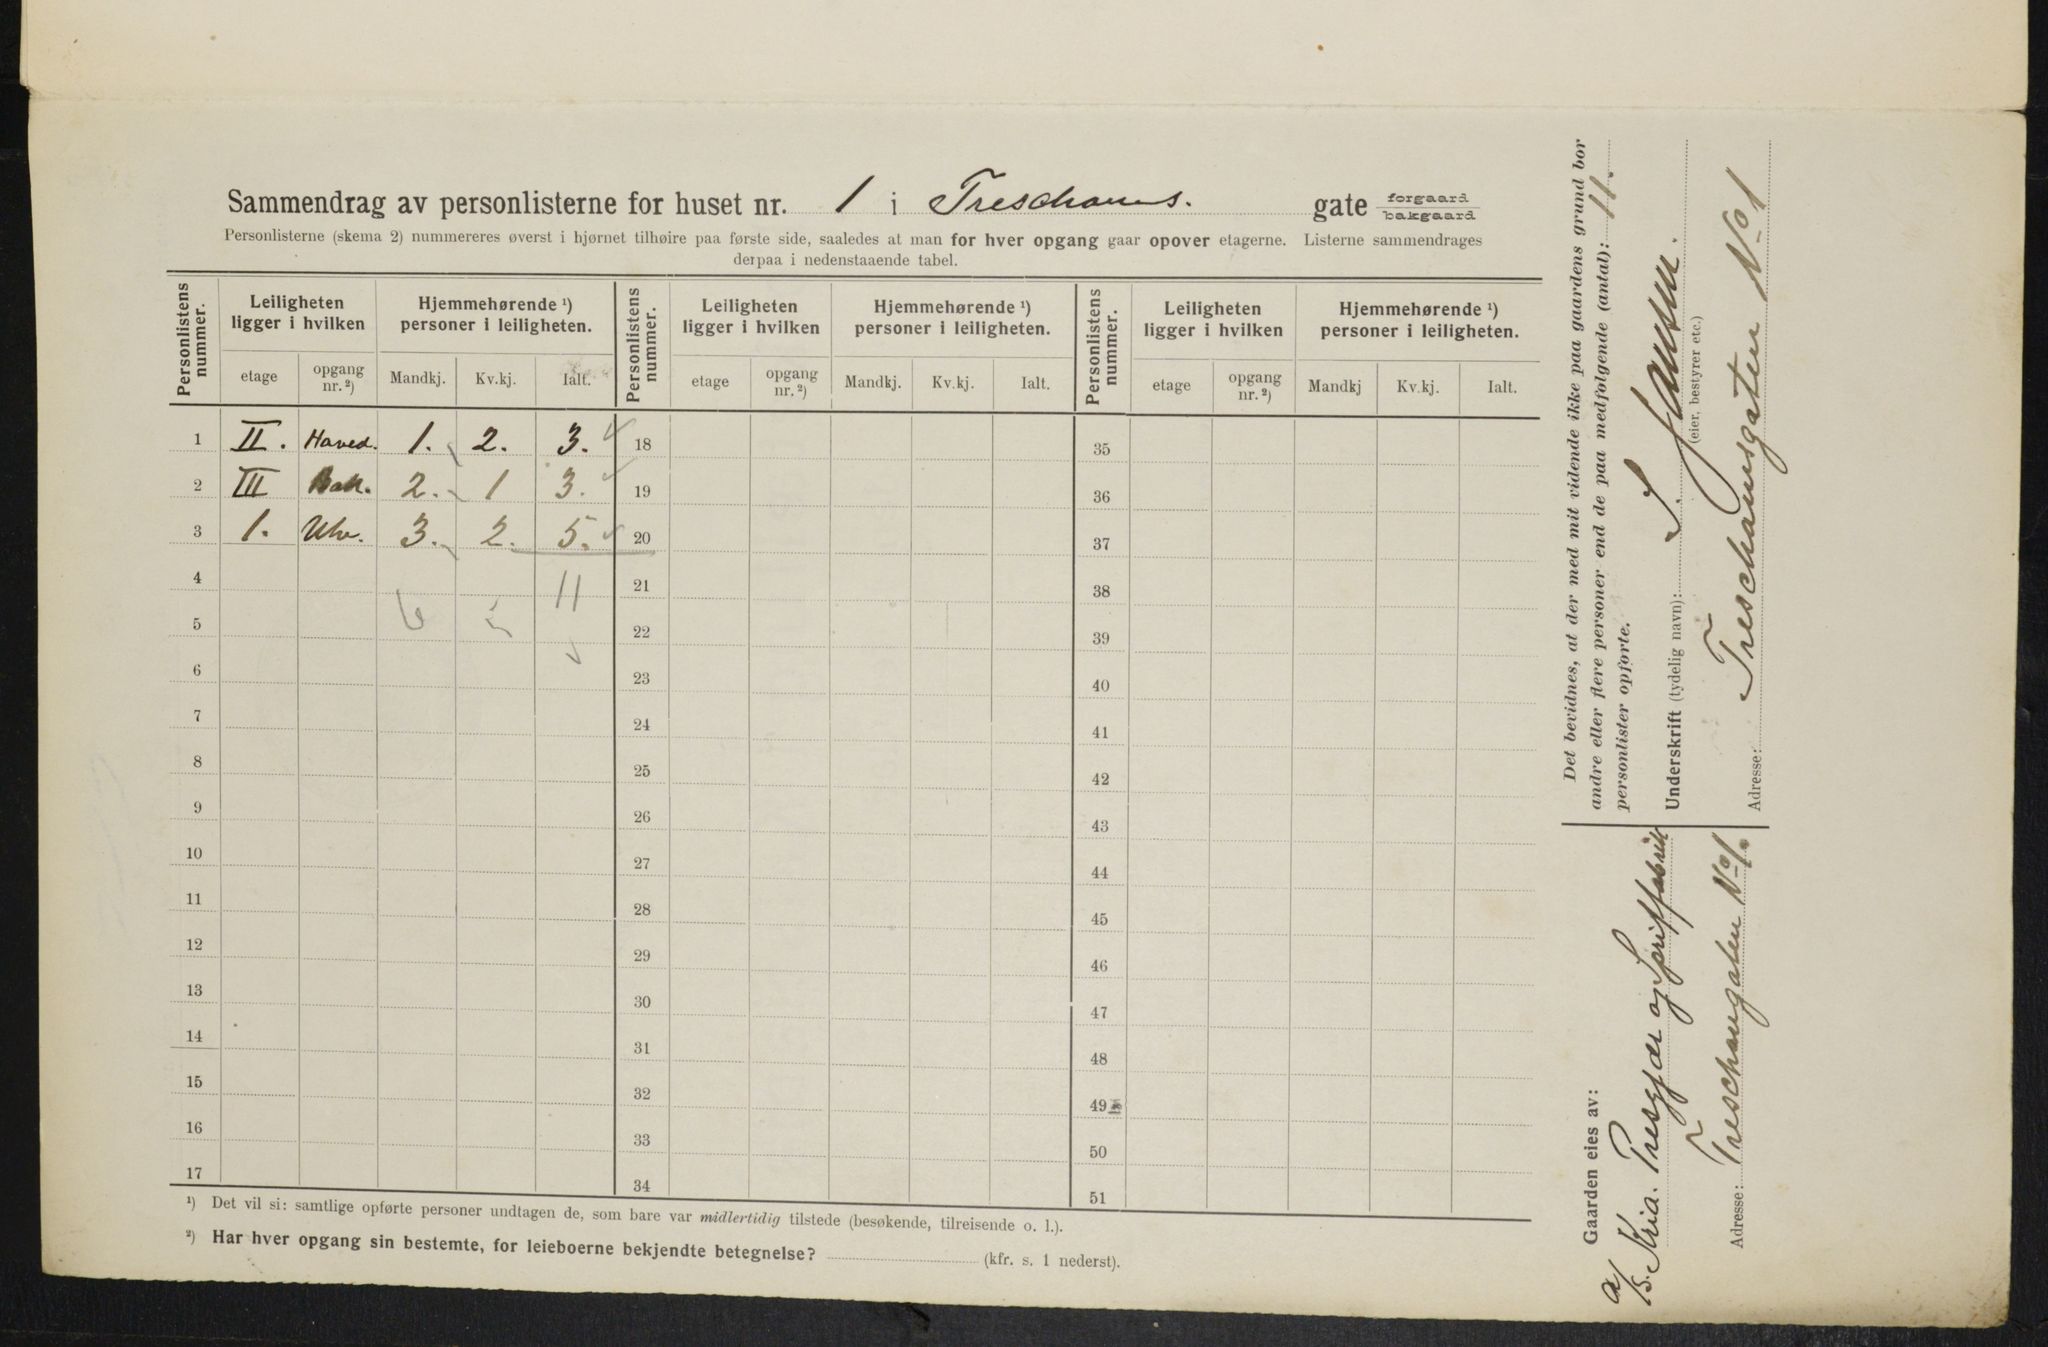 Sammendrag av personlisterne for huset nr. 1 i Treschows. gate forgaard bakgaard
Personlisterne (skema 2) nummereres øverst i hjørnet tilhøire paa første side, saaledes at man for hver opgang gaar opover etagerne. Listerne sammendrages
derpaa i nedenstaaende tabel.
Personlistens nummer. Leiligheten ligger i hvilken Hjemmehørende ¹) personer i leiligheten. Personlistens nummer. Leiligheten ligger i hvilken Hjemmehørende ¹) personer i leiligheten. Personlistens nummer. Leiligheten ligger i hvilken Hjemmehørende ¹) personer i leiligheten.
etage opgang nr. ²) Mandkj. Kv.kj. Ialt. etage opgang nr. ²) Mandkj. Kv.kj. Ialt. etage opgang nr. ²) Mandkj Kv.kj. Ialt.
1 II. Hoved. 1. 2. 3. 18 35
2 III Bak. 2. 1 3. 19 36
3 1. 3. 2. 5. 20 37
4 11 21 38
5 6 5 22 39
6 23 40
7 24 41
8 25 42
9 26 43
10 27 44
11 28 45
12 29 46
13 30 47
14 31 48
15 32 49
16 33 50
17 34 51
¹) Det vil si: samtlige opførte personer undtagen de, som bare var midlertidig tilstede (besøkende, tilreisende o. l.).
²) Har hver opgang sin bestemte, for leieboerne bekjendte betegnelse? (kfr. s. 1 nederst).
Det bevidnes, at der med mit vidende ikke paa gaardens grund bor
andre eller flere personer end de paa medfølgende (antal): 11.
personlister opførte.
Underskrift (tydelig navn): S. Hansen.
(eier, bestyrer etc.)
Adresse: Treschowsgaten No 1
Gaarden eies av:
a/s. Kria. Presgjær og Spritfabrik
Adresse: Treschowsgaten No 1.